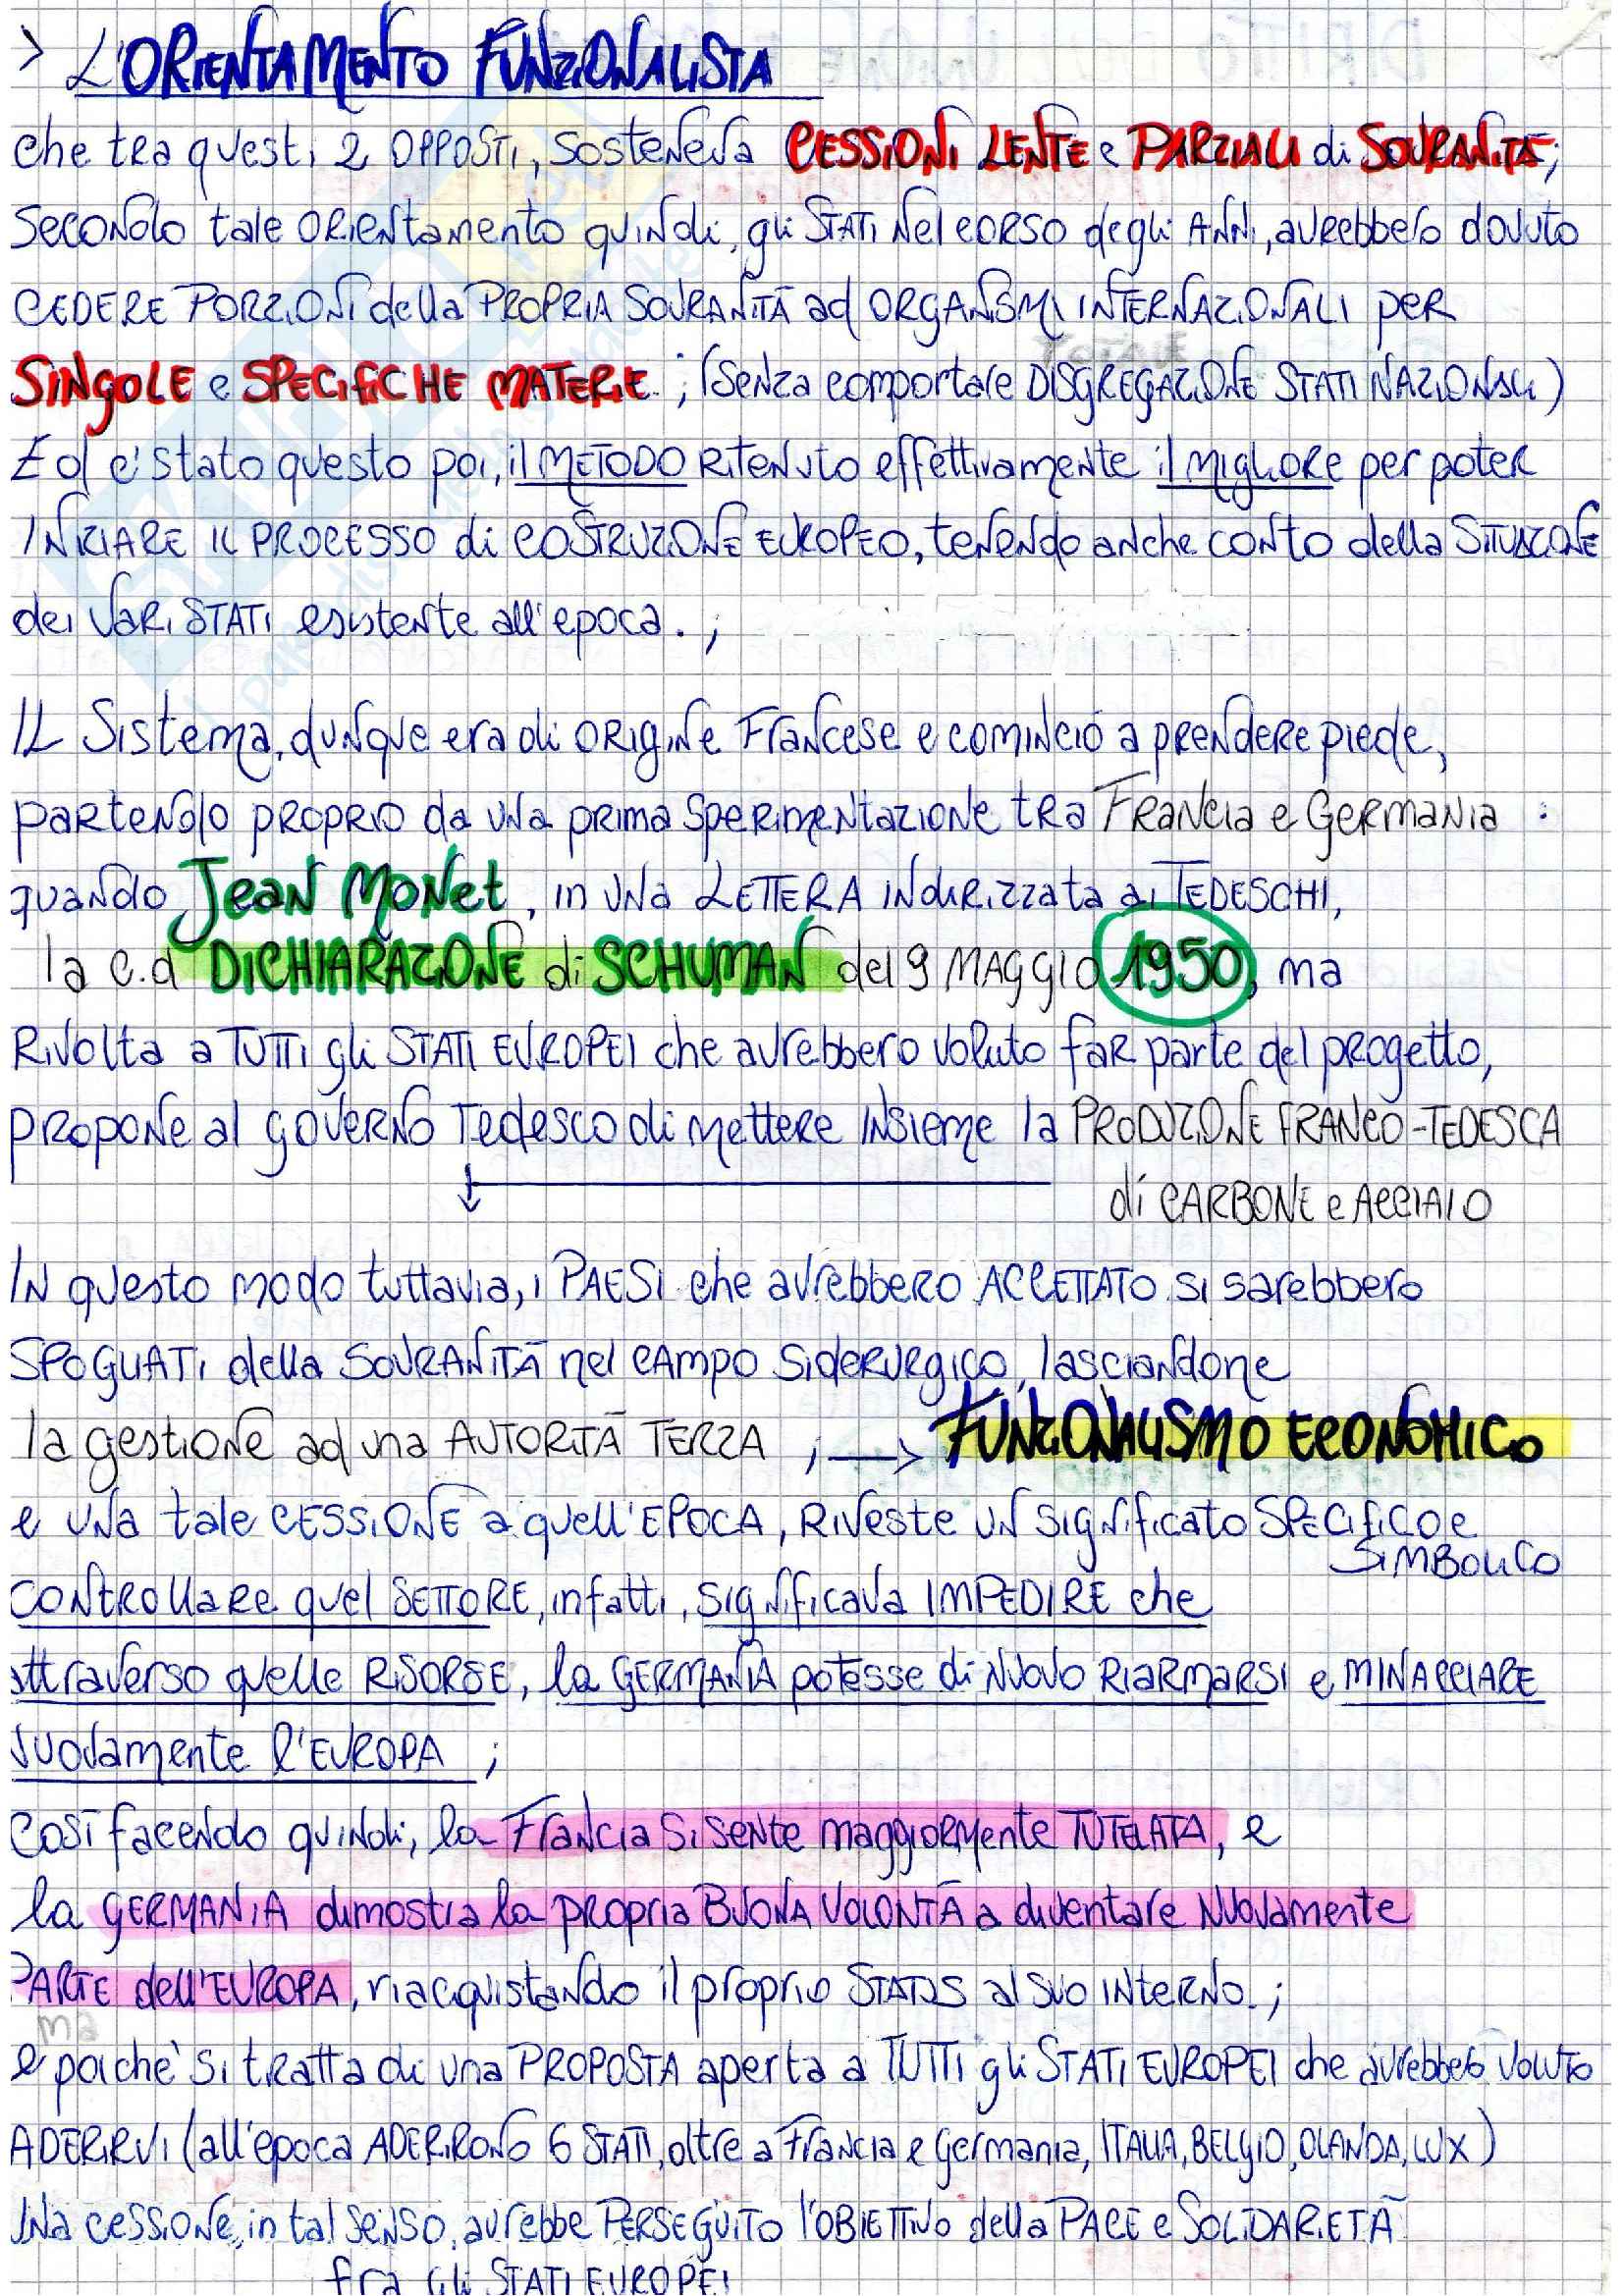 > L'ORIENTAMENTO FUNZIONALISTA
che tra questi 2 OPPOSTI, sosteneva CESSIONI LENTE e PARZIALI di SOVRANITÀ;
secondo tale orientamento quindi, gli STATI nel corso degli ANNI, avrebbero dovuto
CEDERE PORZIONI della PROPRIA SOVRANITÀ ad ORGANISMI INTERNAZIONALI per
SINGOLE e SPECIFICHE MATERIE ; (senza comportare DISGREGAZIONE STATI NAZIONALI)
Ed è stato questo poi, il METODO Ritenuto effettivamente il MIGLIORE per poter
INIZIARE IL PROCESSO di COSTRUZIONE EUROPEO, tenendo anche conto della SITUAZIONE
dei VARI STATI esistente all'epoca. ;
IL Sistema, dunque era di ORIGINE Francese e cominciò a prendere piede,
partendo PROPRIO da una prima sperimentazione tra Francia e Germania :
quando Jean Monet, in una LETTERA indirizzata ai TEDESCHI,
la c.d DICHIARAZIONE di SCHUMAN del 9 MAGGIO 1950, ma
Rivolta a TUTTI gli STATI EUROPEI che avrebbero voluto far parte del progetto,
PROPONE al GOVERNO Tedesco di mettere insieme la PRODUZIONE FRANCO-TEDESCA
di CARBONE e ACCIAIO
In questo modo tuttavia, i PAESI che avrebbero ACCETTATO si sarebbero
SPOGLIATI della SOVRANITÀ nel CAMPO Siderurgico, lasciandone
la gestione ad una AUTORITÀ TERZA ; → FUNZIONALISMO ECONOMICO
e una tale CESSIONE a quell'EPOCA, Riveste un significato SPECIFICO e
SIMBOLICO
CONTROllare quel SETTORE, infatti, significava IMPEDIRE che
attraverso quelle RISORSE, la GERMANIA potesse di NUOVO RIARMARSI e MINACCIARE
nuovamente l'EUROPA ;
Così facendo quindi, la Francia si sente maggiormente TUTELATA, e
la GERMANIA dimostra la propria BUONA VOLONTÀ a diventare Nuovamente
PARTE dell'EUROPA, riacquistando il proprio STATUS al suo interno. ;
ma
e poichè si tratta di una PROPOSTA aperta a TUTTI gli STATI EUROPEI che avrebbero voluto
ADERIRVI (all'epoca ADERIRONO 6 STATI, oltre a Francia e Germania, ITALIA, BELGIO, OLANDA, LUX)
Una cessione, in tal senso, avrebbe PERSEGUITO l'OBIETTIVO della PACE e SOLIDARIETÀ
fra gli STATI EUROPEI